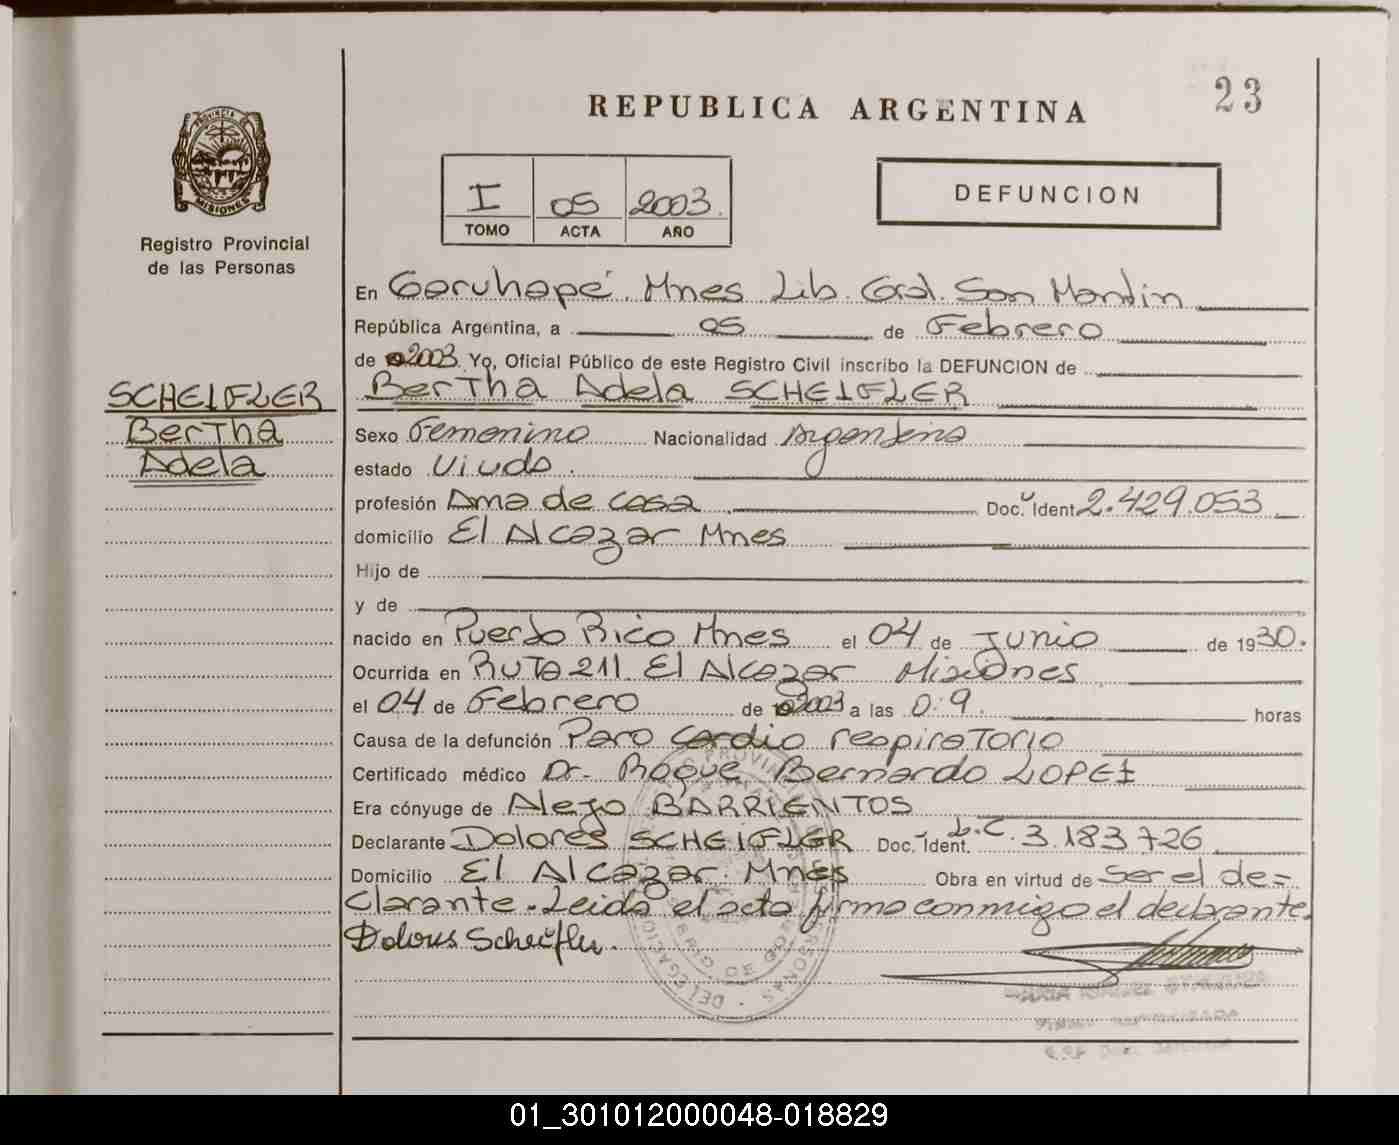 23
REPUBLICA ARGENTINA
PROVINCIA DE
MISIONES
Registro Provincial
de las Personas
I 05 2003.
TOMO ACTA AÑO
DEFUNCION
En Garuhapé. Mnes Lib. Gral. San Martin
República Argentina, a 05 de Febrero
de 2003. Yo, Oficial Público de este Registro Civil inscribo la DEFUNCION de
SCHEIFLER
Bertha
Adela
Bertha Adela SCHEIFLER
Sexo Femenino Nacionalidad Argentina
estado Viuda.
profesión Ama de casa Doc. Ident. 2.429.053
domicilio El Alcazar Mnes
Hijo de
y de
nacido en Puerto Rico Mnes el 04 de Junio de 1930.
Ocurrida en Ruta 211. El Alcazar Misiones
el 04 de Febrero de 2003 a las 0.9. horas
Causa de la defunción Paro cardio respiratorio
Certificado médico Dr. Roque Bernardo LOPEZ
Era cónyuge de Alejo BARRIENTOS
Declarante Dolores SCHEIFLER Doc. Ident. L.C. 3.183.726
Domicilio El Alcazar. Mnes Obra en virtud de Ser el de=
Clarante. Leida el acta firma conmigo el declarante.
Dolores Scheifler.
01_301012000048-018829